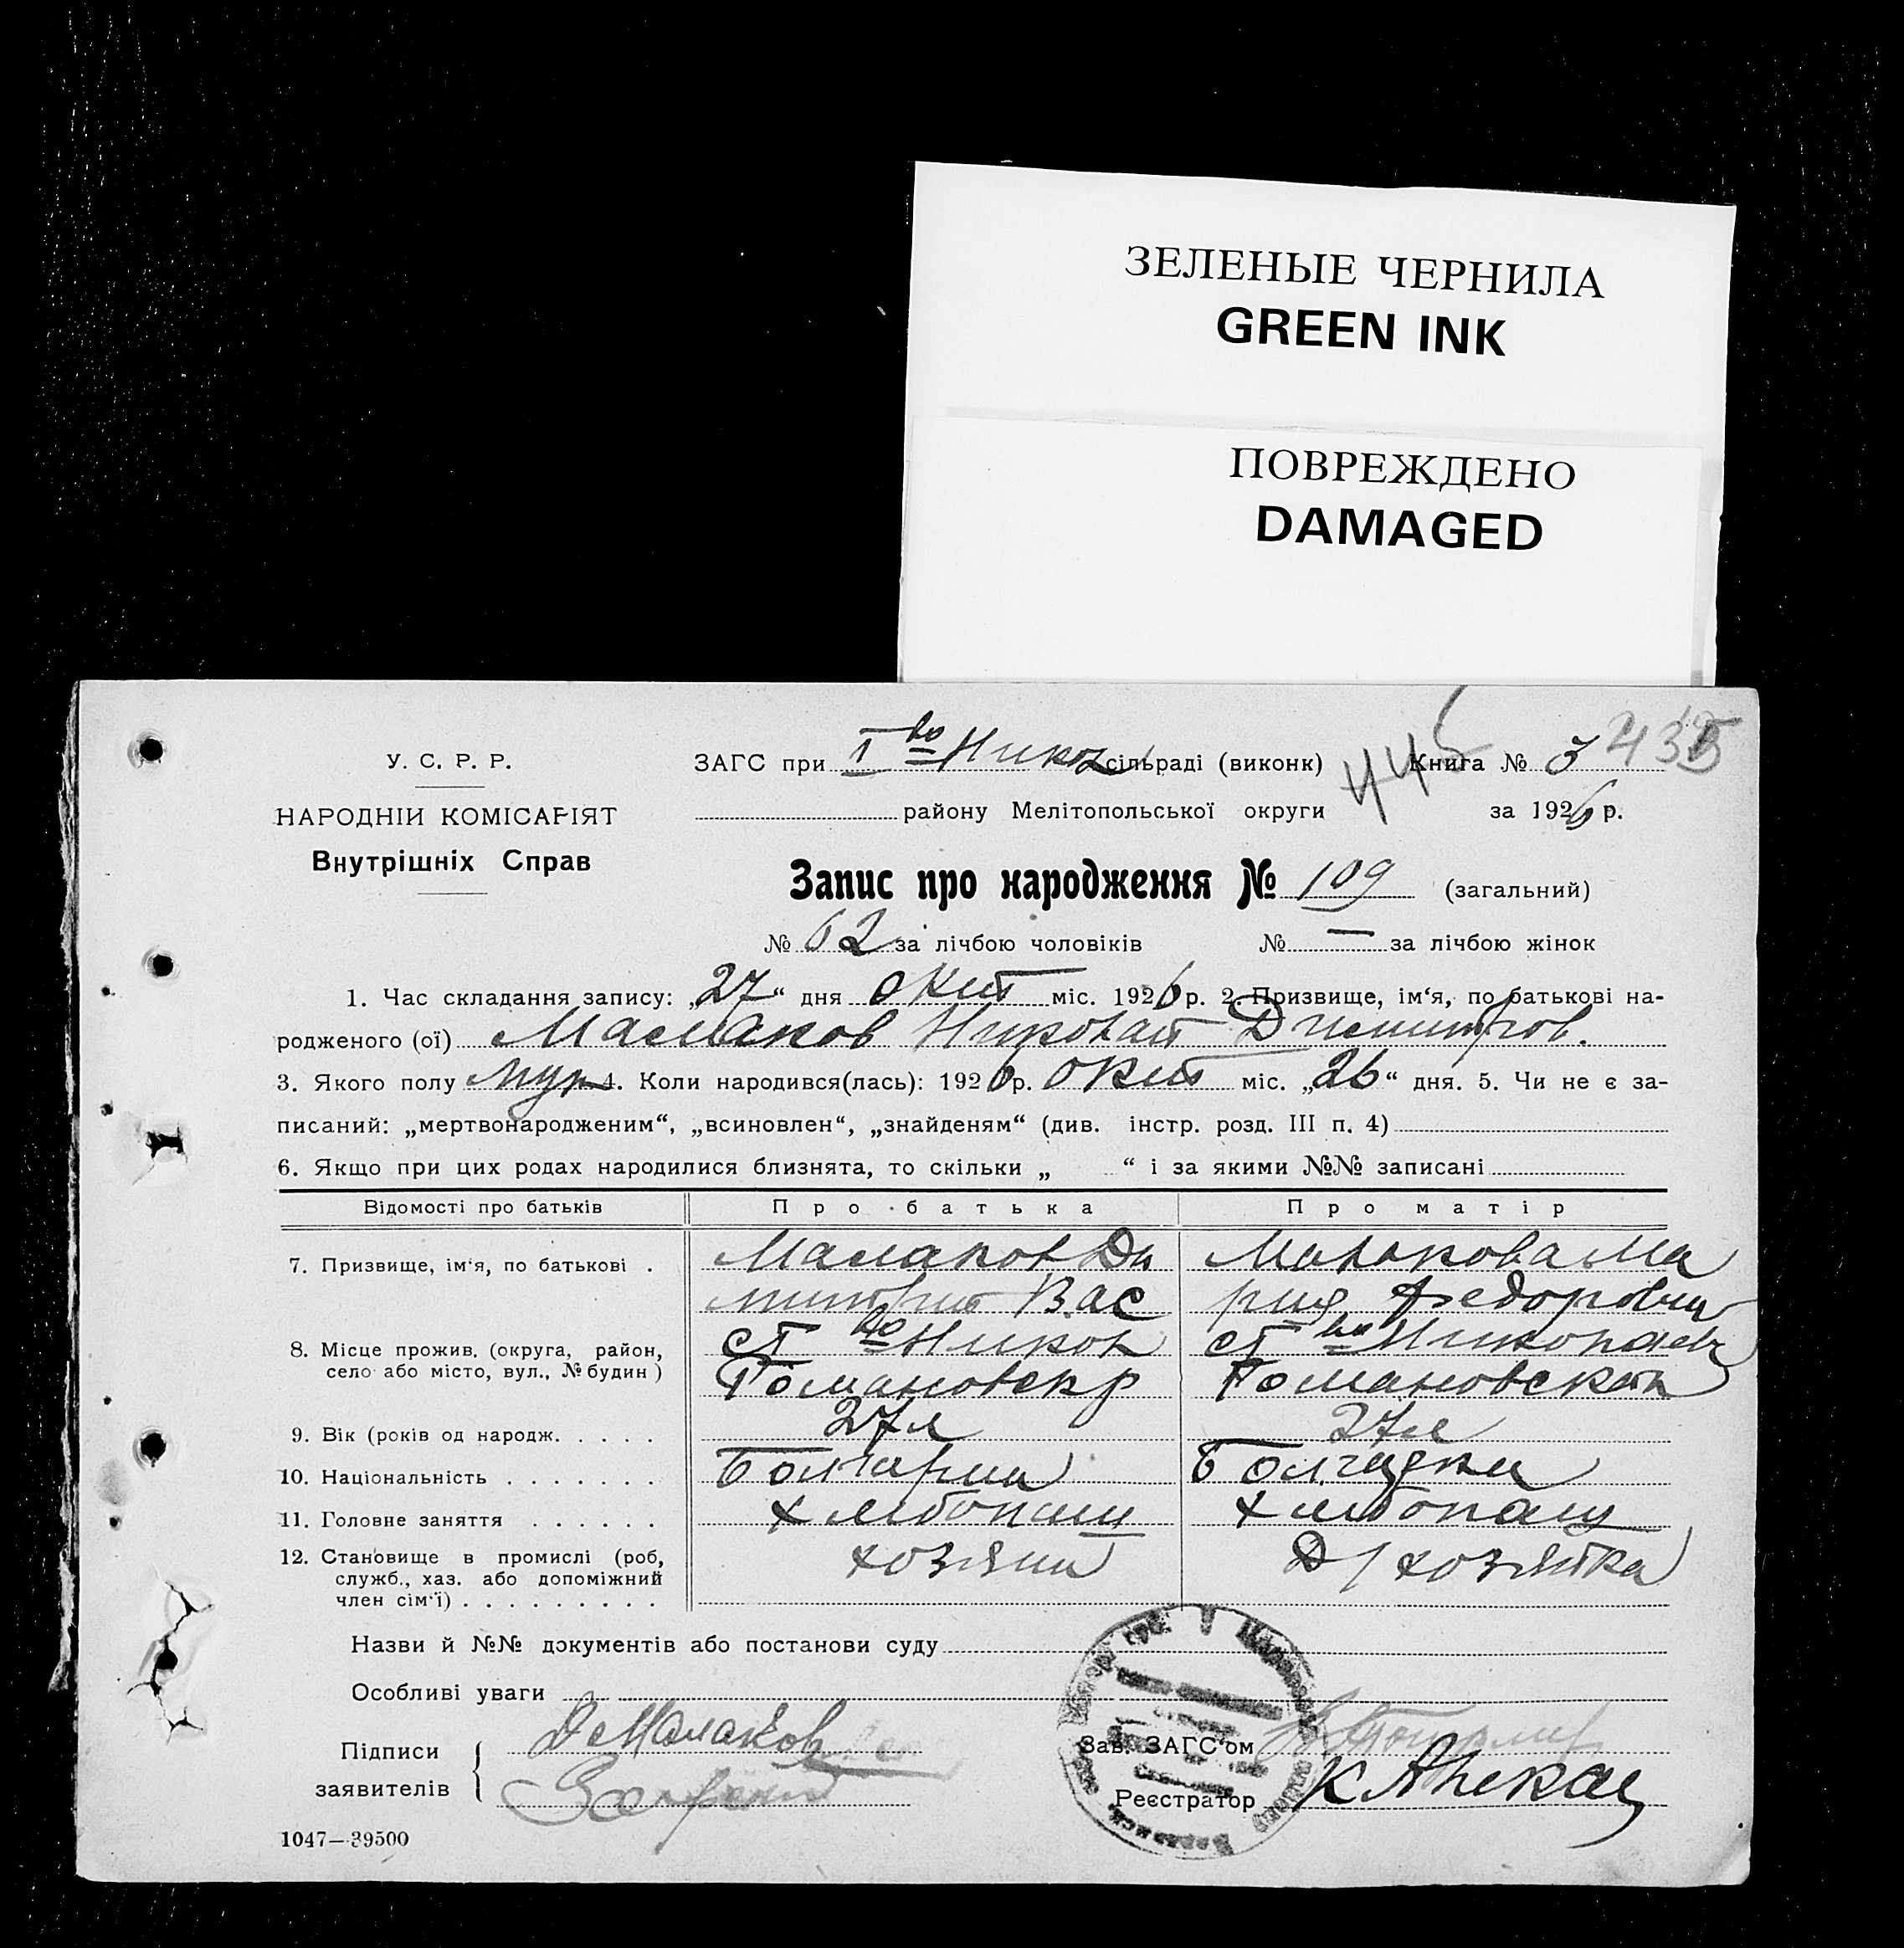 ЗЕЛЕНЫЕ ЧЕРНИЛА
GREEN INK
ПОВРЕЖДЕНО
DAMAGED
У. С. Р. Р.
НАРОДНІЙ КОМІСАРІЯТ
Внутрішніх Справ
ЗАГС при І во Никол сільраді (виконк) Книга № 3
району Мелітопольської округи за 1926 р.
Запис про народження № 109 (загальний)
№ 62 за лічбою чоловіків № — за лічбою жінок
1. Час складання запису: „27“ дня окт міс. 1926 р. 2. Призвище, ім‘я, по батькові на-
родженого (ої) Николай Димитров.
3. Якого полу муж 4. Коли народився(лась): 1926 р. окт міс. „26“ дня. 5. Чи не є за-
писаний: „мертвонародженим“, „всиновлен“, „знайденям“ (див. інстр. розд. III п. 4)
6. Якщо при цих родах народилися близнята, то скільки „ “ і за якими №№ записані
Відомості про батьків Про батька Про матір
7. Призвище, ім‘я, по батькові . Малаков Ди Малакова Ма
митрий Вас рия Федоровна
8. Місце прожив. (округа, район, Никол Николаев
село або місто, вул., № будин) Романовскр Романовская
9. Вік (років од народж. . . . . 27 л 27 л
10. Національність . . . . . . . Болгарин Болгарка
11. Головне заняття . . . . . . хлебопаш хлебопаш
12. Становище в промислі (роб, хозяин Д/хозяйка
служб., хаз. або допоміжний
член сім‘ї) . . . . . . . . .
Назви й №№ документів або постанови суду
Особливі уваги
Підписи Д Малаков Зав. ЗАГС‘ом
заявителів Реєстратор
1047—39500